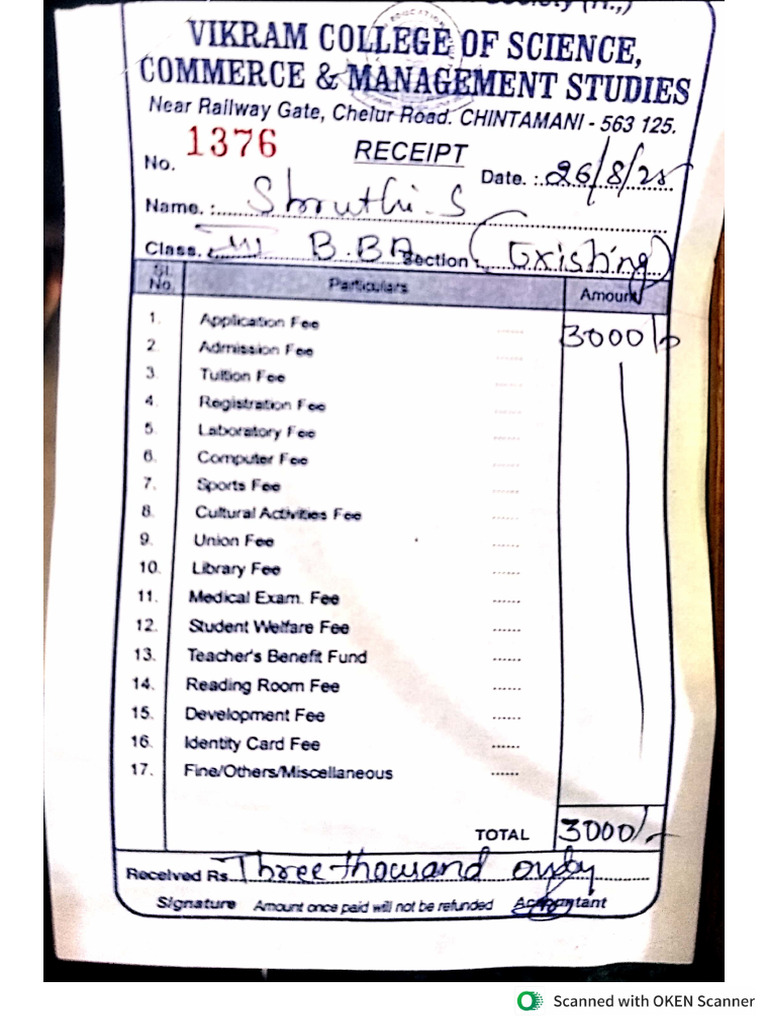 VIKRAM COLLEGE OF SCIENCE,
COMMERCE & MANAGEMENT STUDIES
Near Railway Gate, Chelur Road. CHINTAMANI - 563 125.
No. 1376 RECEIPT Date. : 26/8/25
Name. : Shruthi. S
Class. : B.BA Section : (Existing)
Sl. No. Particulars Amount
1. Application Fee ...... 3000/-
2. Admission Fee ......
3. Tuition Fee ......
4. Registration Fee ......
5. Laboratory Fee ......
6. Computer Fee ......
7. Sports Fee ......
8. Cultural Activities Fee ......
9. Union Fee ......
10. Library Fee ......
11. Medical Exam. Fee ......
12. Student Welfare Fee ......
13. Teacher's Benefit Fund ......
14. Reading Room Fee ......
15. Development Fee ......
16. Identity Card Fee ......
17. Fine/Others/Miscellaneous ......
TOTAL 3000/-
Received Rs. Three thousand only
Signature Amount once paid will not be refunded Accountant
Scanned with OKEN Scanner